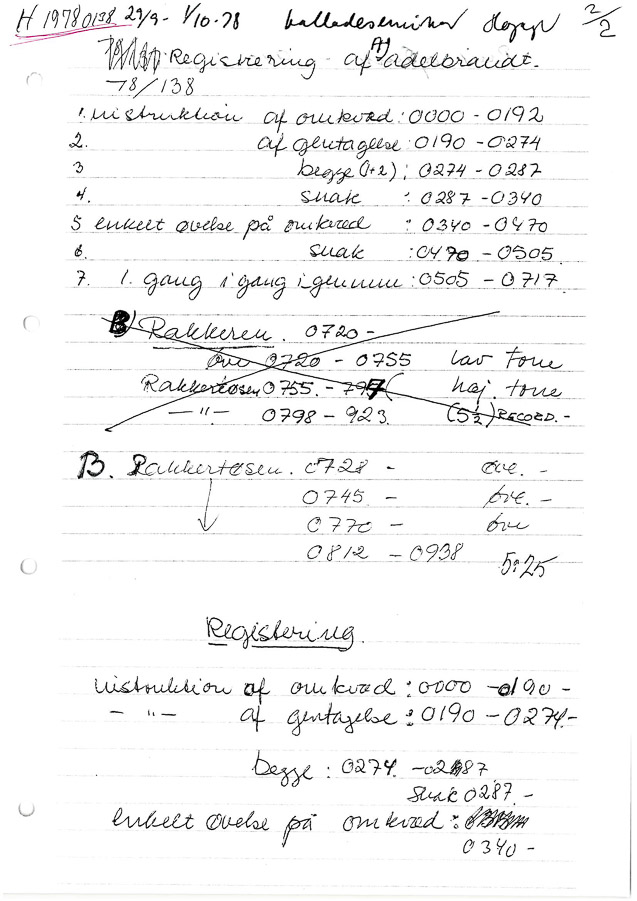 H 19780138 29/9 - 1/10-78 balladeseminar 2/2
Registrering af A) adelbrandt.
78/138
1. instruktion af omkvæd : 0000 - 0192
2. af gentagelse : 0190 - 0274
3 begge (1+2) : 0274 - 0287
4. snak : 0287 - 0340
5 enkelt øvelse på omkvæd : 0340 - 0470
6. snak : 0470 - 0505
7. 1. gang i gang igennem : 0505 - 0717
B) Rakkeren. 0720 -
øve 0720 - 0755 lav tone
Rakkertøsen 0755. - 797 høj. tone
— " — 0798 - 923 (5½) RECORD. -
B. Rakkertøsen. 0728 - øve. -
0745 - øve. -
0770 - øve
0812 - 0938 5:25
Registering.
instruktion af omkvæd : 0000 - 0190 -
— " — af gentagelse : 0190 - 0274. -
begge : 0274. - 0287
snak 0287. -
enkelt øvelse på omkvæd :
0340 -